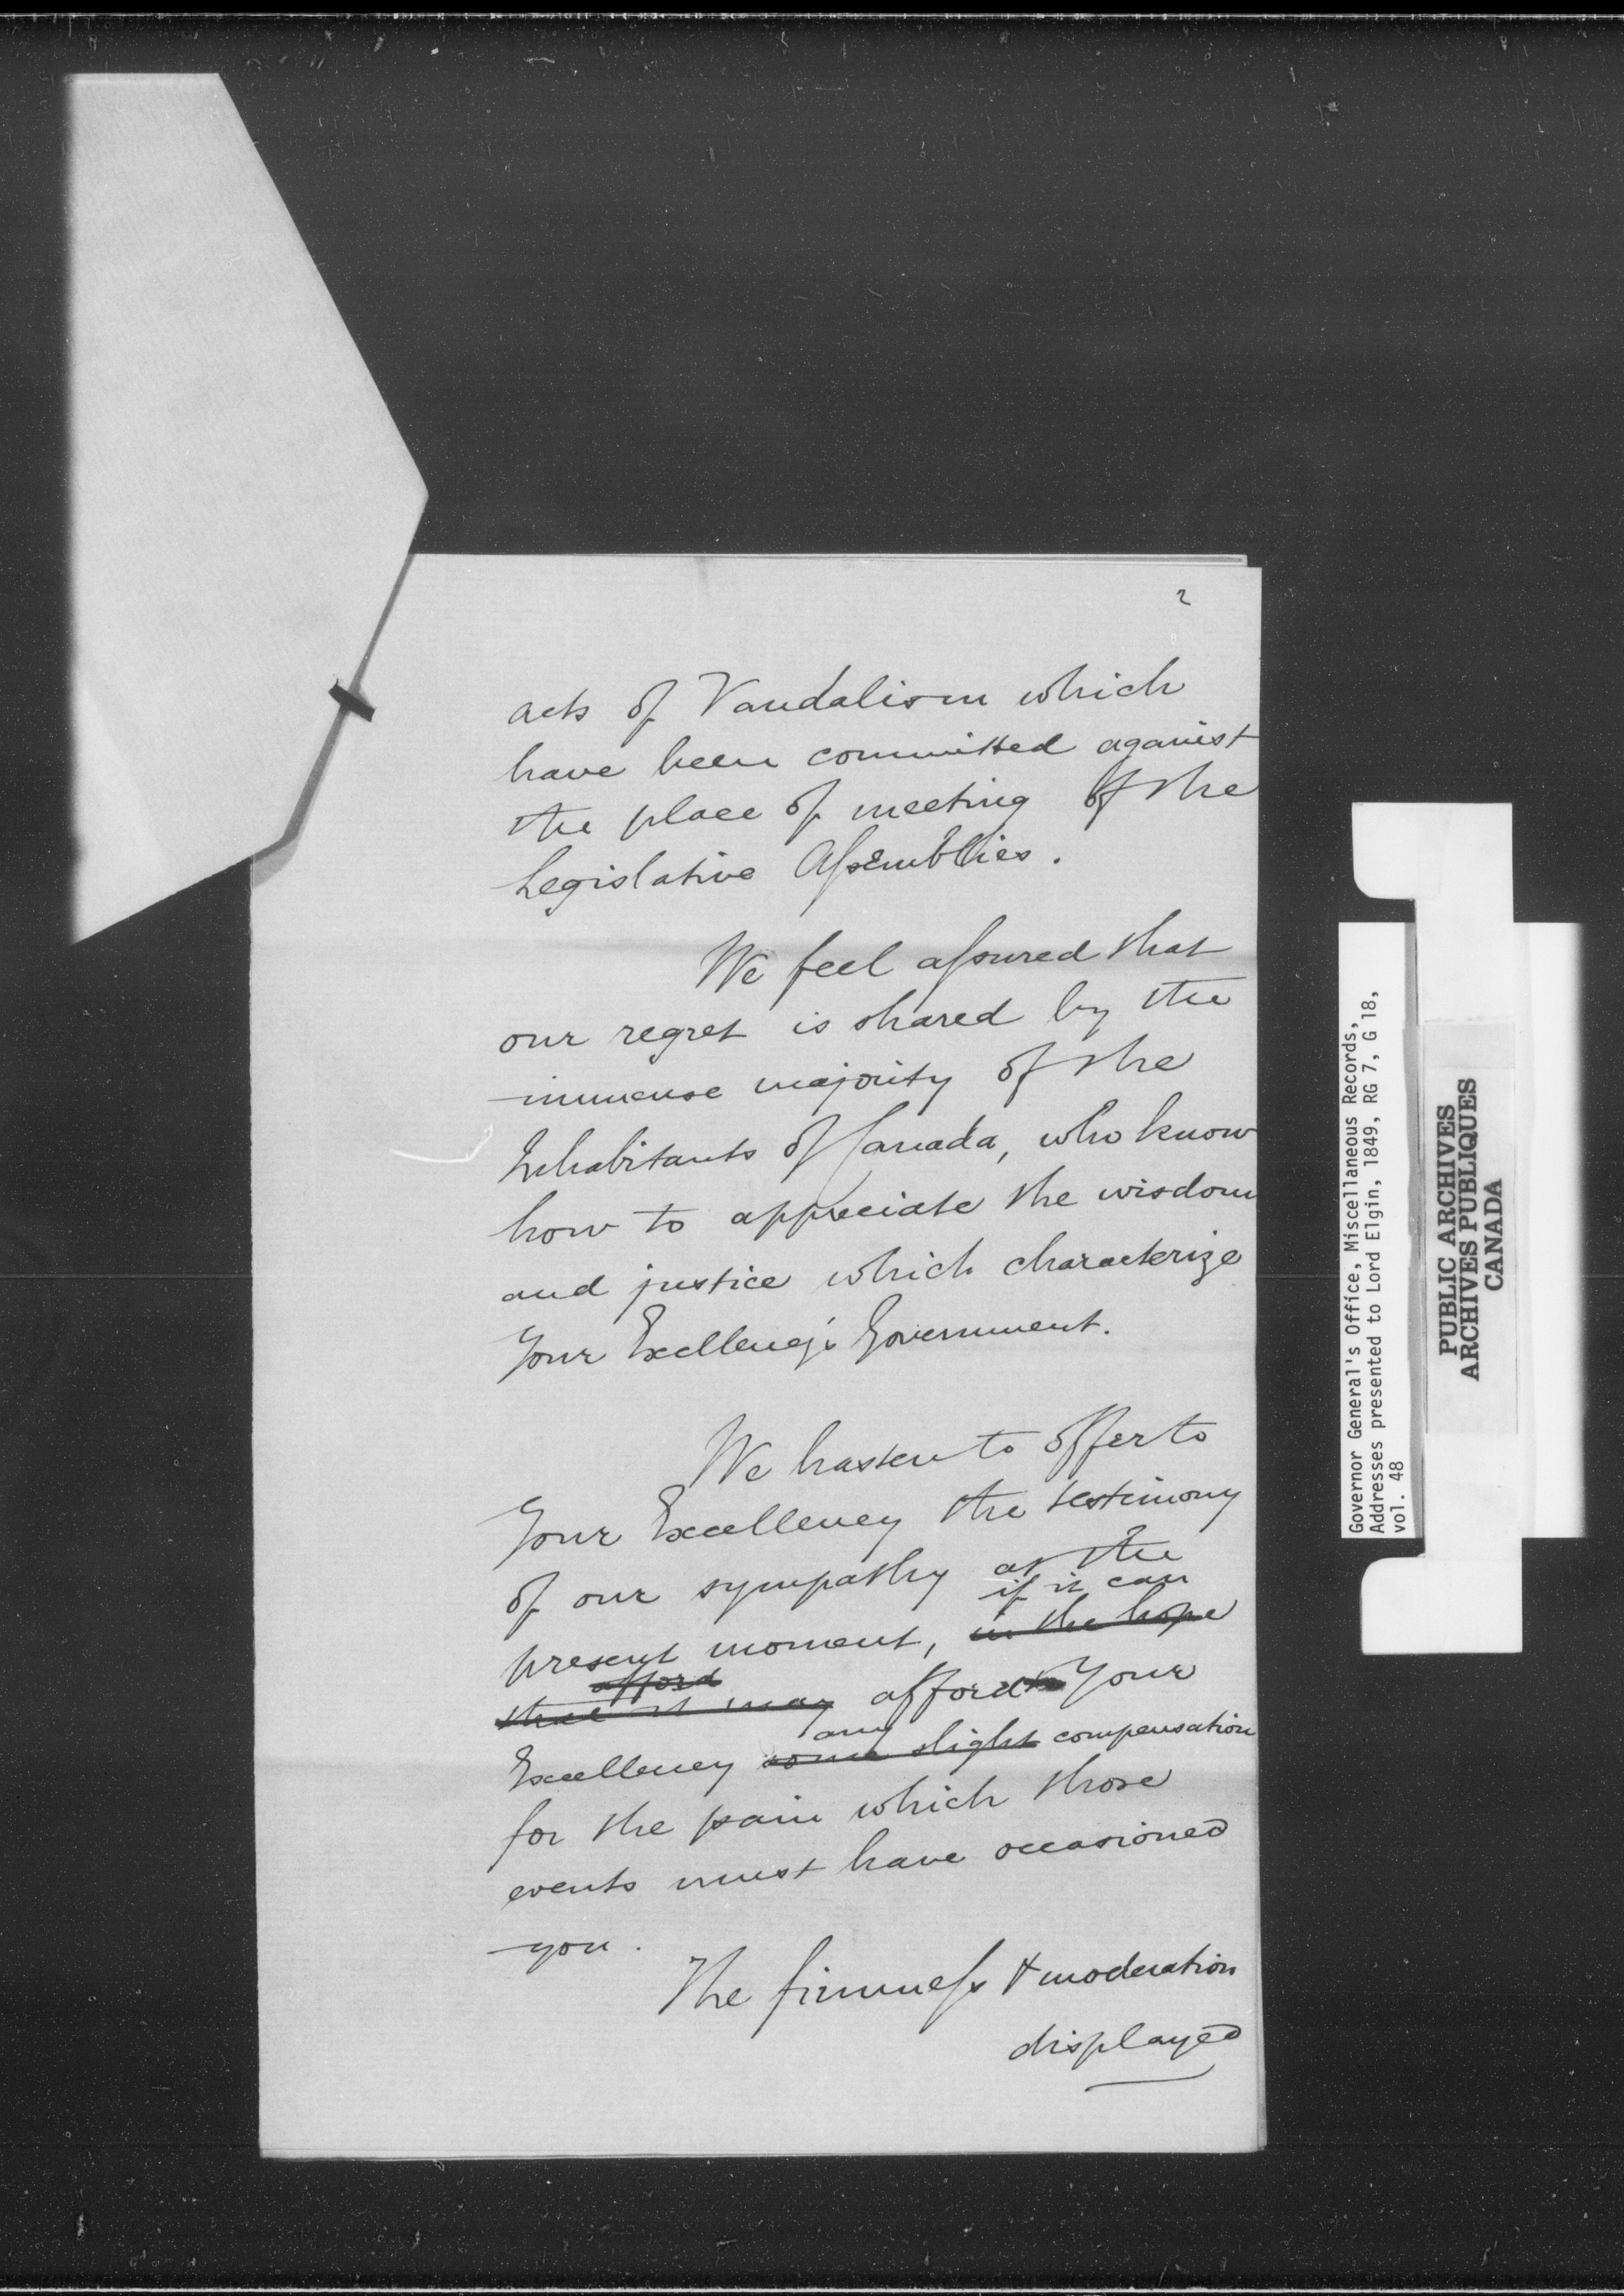 2
acts of Vandalism which
have been committed against
the place of meeting of the
Legislative Assemblies.
We feel assured that
our regret is shared by the
immense majority of the
Inhabitants of Canada, who know
how to appreciate the wisdom
and justice which characterize
Your Excellency's Government.
We hasten to offer to
Your Excellency the testimony
of our sympathy at the
if it can
present moment, in the hope
afford
that it may afford Your
any
Excellency some slight compensation
for the pain which those
events must have occasioned
you.
The firmness & moderation
displayed
Governor General's Office, Miscellaneous Records,
Addresses presented to Lord Elgin, 1849, RG 7, G 18,
vol. 48
PUBLIC ARCHIVES
ARCHIVES PUBLIQUES
CANADA